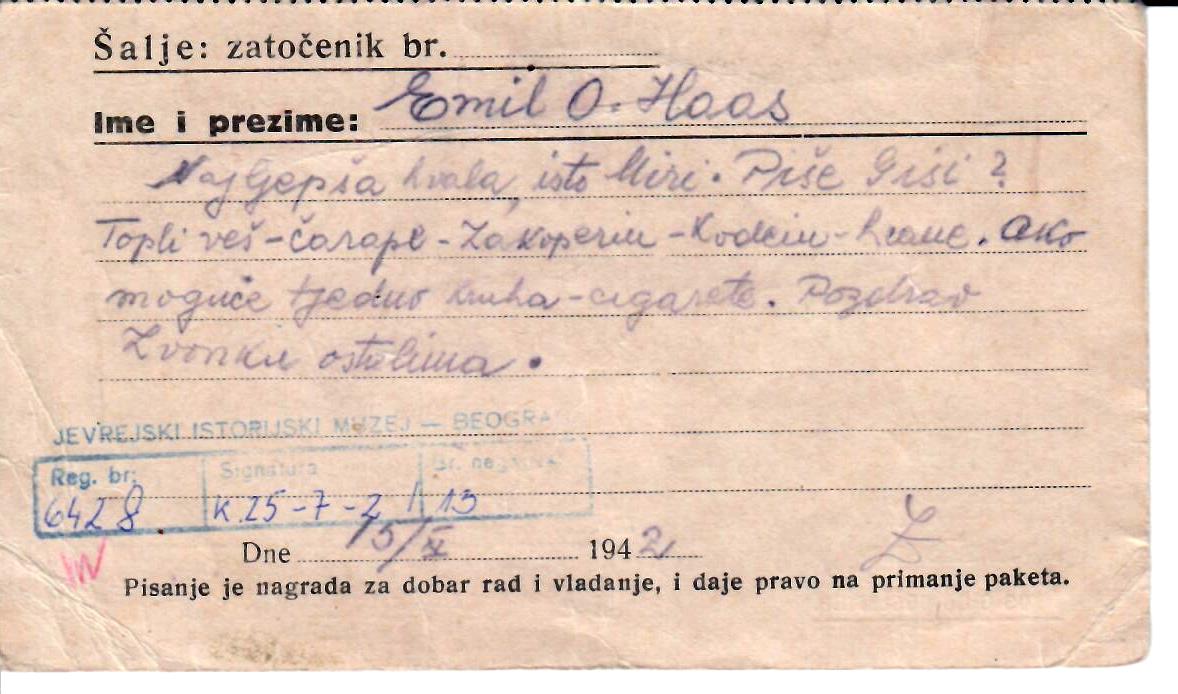 Šalje: zatočenik br.
Ime i prezime: Emil O. Haas
Najljepša hvala, isto Miri. Piše Gisi?
Topli veš - čarape - Zakoperiu - Kodein - hrane. Ako
moguće tjedno kruha - cigarete. Pozdrav
Zvonku ostalima.
JEVREJSKI ISTORIJSKI MUZEJ — BEOGRA
Reg. br: Signatura Br. negativa
6428 K.25-7-2/ 13
Dne 15/X 1942
Pisanje je nagrada za dobar rad i vladanje, i daje pravo na primanje paketa.